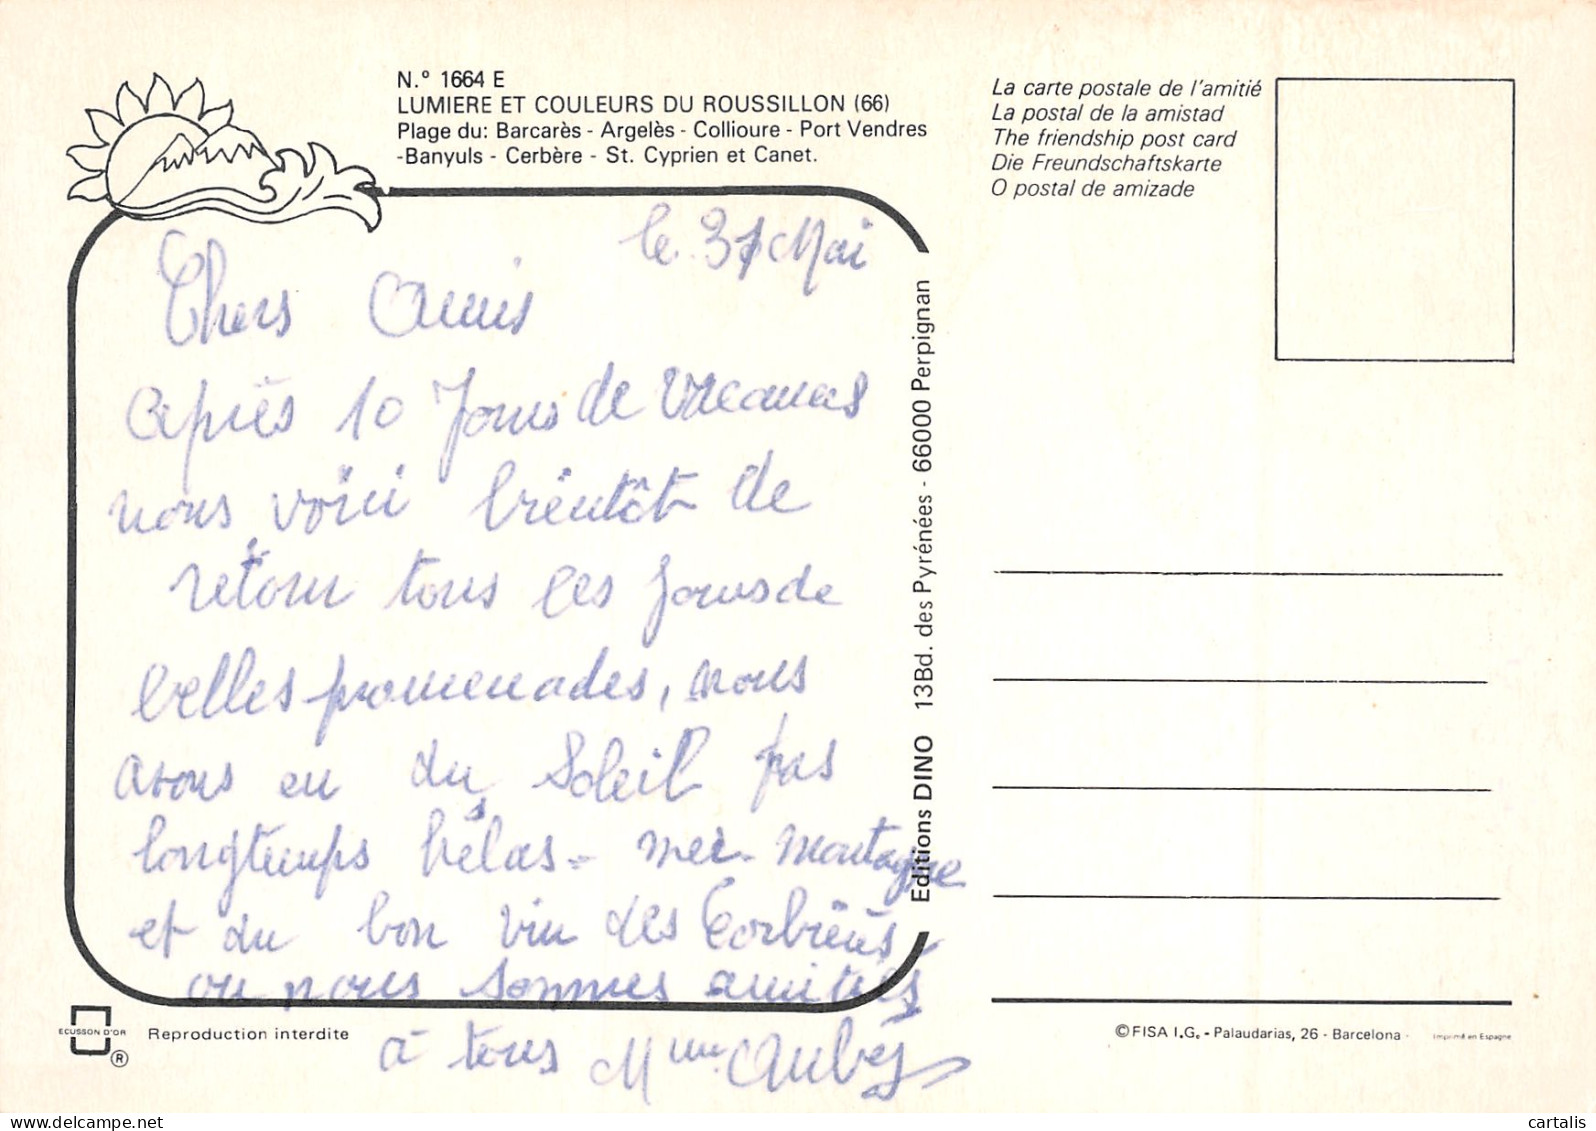 N.º 1664 E
LUMIERE ET COULEURS DU ROUSSILLON (66)
Plage du: Barcarès - Argelès - Collioure - Port Vendres
-Banyuls - Cerbère - St. Cyprien et Canet.
La carte postale de l'amitié
La postal de la amistad
The friendship post card
Die Freundschaftskarte
O postal de amizade
le 31 Mai
Chers Amis
après 10 Jours de vacances
nous voici bientôt de
retour tous les jours de
belles promenades, nous
avons eu du soleil pas
longtemps hélas - mer - montagne
et du bon vin des Corbières
ou nous sommes amitiés
à tous Mme
Editions DINO 13Bd. des Pyrénées - 66000 Perpignan
ECUSSON D'OR
®
Reproduction interdite
© FISA I.G. - Palaudarias, 26 - Barcelona
Imprimé en Espagne
www.delcampe.net
cartalis